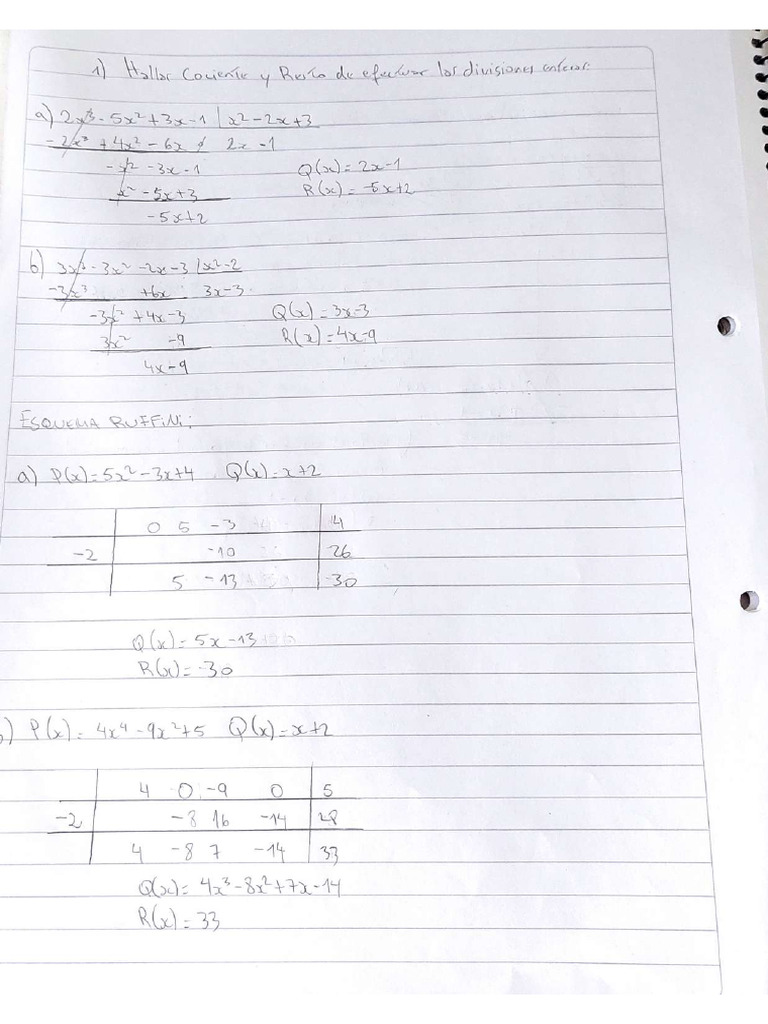 1) Hallar Cociente y Resto de efectuar las divisiones enteras:
a) 2x³ - 5x² + 3x - 1 | x² - 2x + 3
- 2x³ + 4x² - 6x 2x - 1
- x² - 3x - 1 Q(x) = 2x - 1
x² - 5x + 3 R(x) = -5x + 2
- 5x + 2
b) 3x³ - 3x² - 2x - 3 | x² - 2
- 3x³ + 6x 3x - 3
- 3x² + 4x - 3 Q(x) = 3x - 3
3x² - 9 R(x) = 4x - 9
4x - 9
ESQUEMA RUFFINI:
a) P(x) = 5x² - 3x + 4 Q(x) = x + 2
0 5 -3 4
-2 -10 26
5 -13 30
Q(x) = 5x - 13
R(x) = 30
) P(x) = 4x⁴ - 9x² + 5 Q(x) = x + 2
4 0 -9 0 5
-2 -8 16 -14 28
4 -8 7 -14 33
Q(x) = 4x³ - 8x² + 7x - 14
R(x) = 33